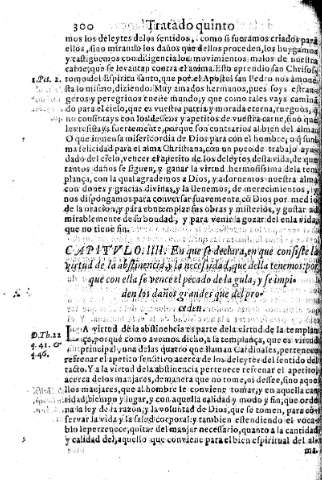 300 Tratado quinto
mos los deleytes de los sentidos, como si fueramos criados para
ellos, sino mirando los daños que dellos proceden, los huygamos
y castiguemos con diligencia los mouimientos malos de nuestra
carne, que se leuantan contra el anima. Esto aprendio san
1. Pet. 2. romo del Espiritu santo, que por el Apostol san Pedro nos amones
ta lo mismo, diziendo: Muy amados hermanos, pues soys estran-
geros y peregrinos en este mundo, y que como tales vays camina
do para el cielo, que es vuestra patria y morada eterna, ruegoos, q̃
no consintays con los desseos y apetitos de vuestra carne, sino que
les resistays fuertemente, porque son contrarios al bien del alma.
O que inmensa misericordia de Dios para con el hombre, o q̃ sum
ma felicidad para el alma Christiana, con vn poco de trabajo ayu
dado del cielo, vencer el apetito de los deleytes desta vida, de que
tantos daños se siguen, y ganar la virtud hermosissima de la tem
plança, con la qual agrademos a Dios, y adornemos nuestra alma
con dones y gracias diuinas, y la llenemos de merecimientos, y
nos dispongamos para conuersar suauemente, cõ Dios por medio
de la oracion, y para contemplar sus obras y misterios, y gustar ad
mirablemente de su bondad, y para venir a gozar del en la vida
que no tiene fin.
CAPITVLO. IIII. En que se declara, en que consiste la
virtud de la abstinencia, y la necessidad, que della tenemos: por
que con ella se vence el pecado de la gula, y se impi-
den los daños grandes que del pro-
ceden.
D. Th. 22 LA virtud de la abstinencia es parte de la virtud de la templan
q. 41. & ça, porque como auemos dicho, a la templança, que es virtud
q. 46. principal, y vna de las quatro que llaman Cardinales, pertenece
refrenar el apetito sensitiuo acerca de los deleytes del sentido del
tacto. Y a la virtud de la abstinencia pertenece refrenar el apetito,
acerca de los manjares, de manera que no tome, ni dessee, sino aque
llos manjares, que al hombre le conuiene tomar, y en aquella can
tidad, tiempo y lugar, y con aquella calidad y modo y fin, que orde
na la ley de la razon, y la voluntad de Dios, que se tomen, para cõ
seruar la vida y la salud corporal: y tambien estendiendo el voca-
blo le pertenece, quitar del manjar necessario, quanto a la cantidad
y calidad del, aquello que conuiene para el bien espiritual del al-
ma.